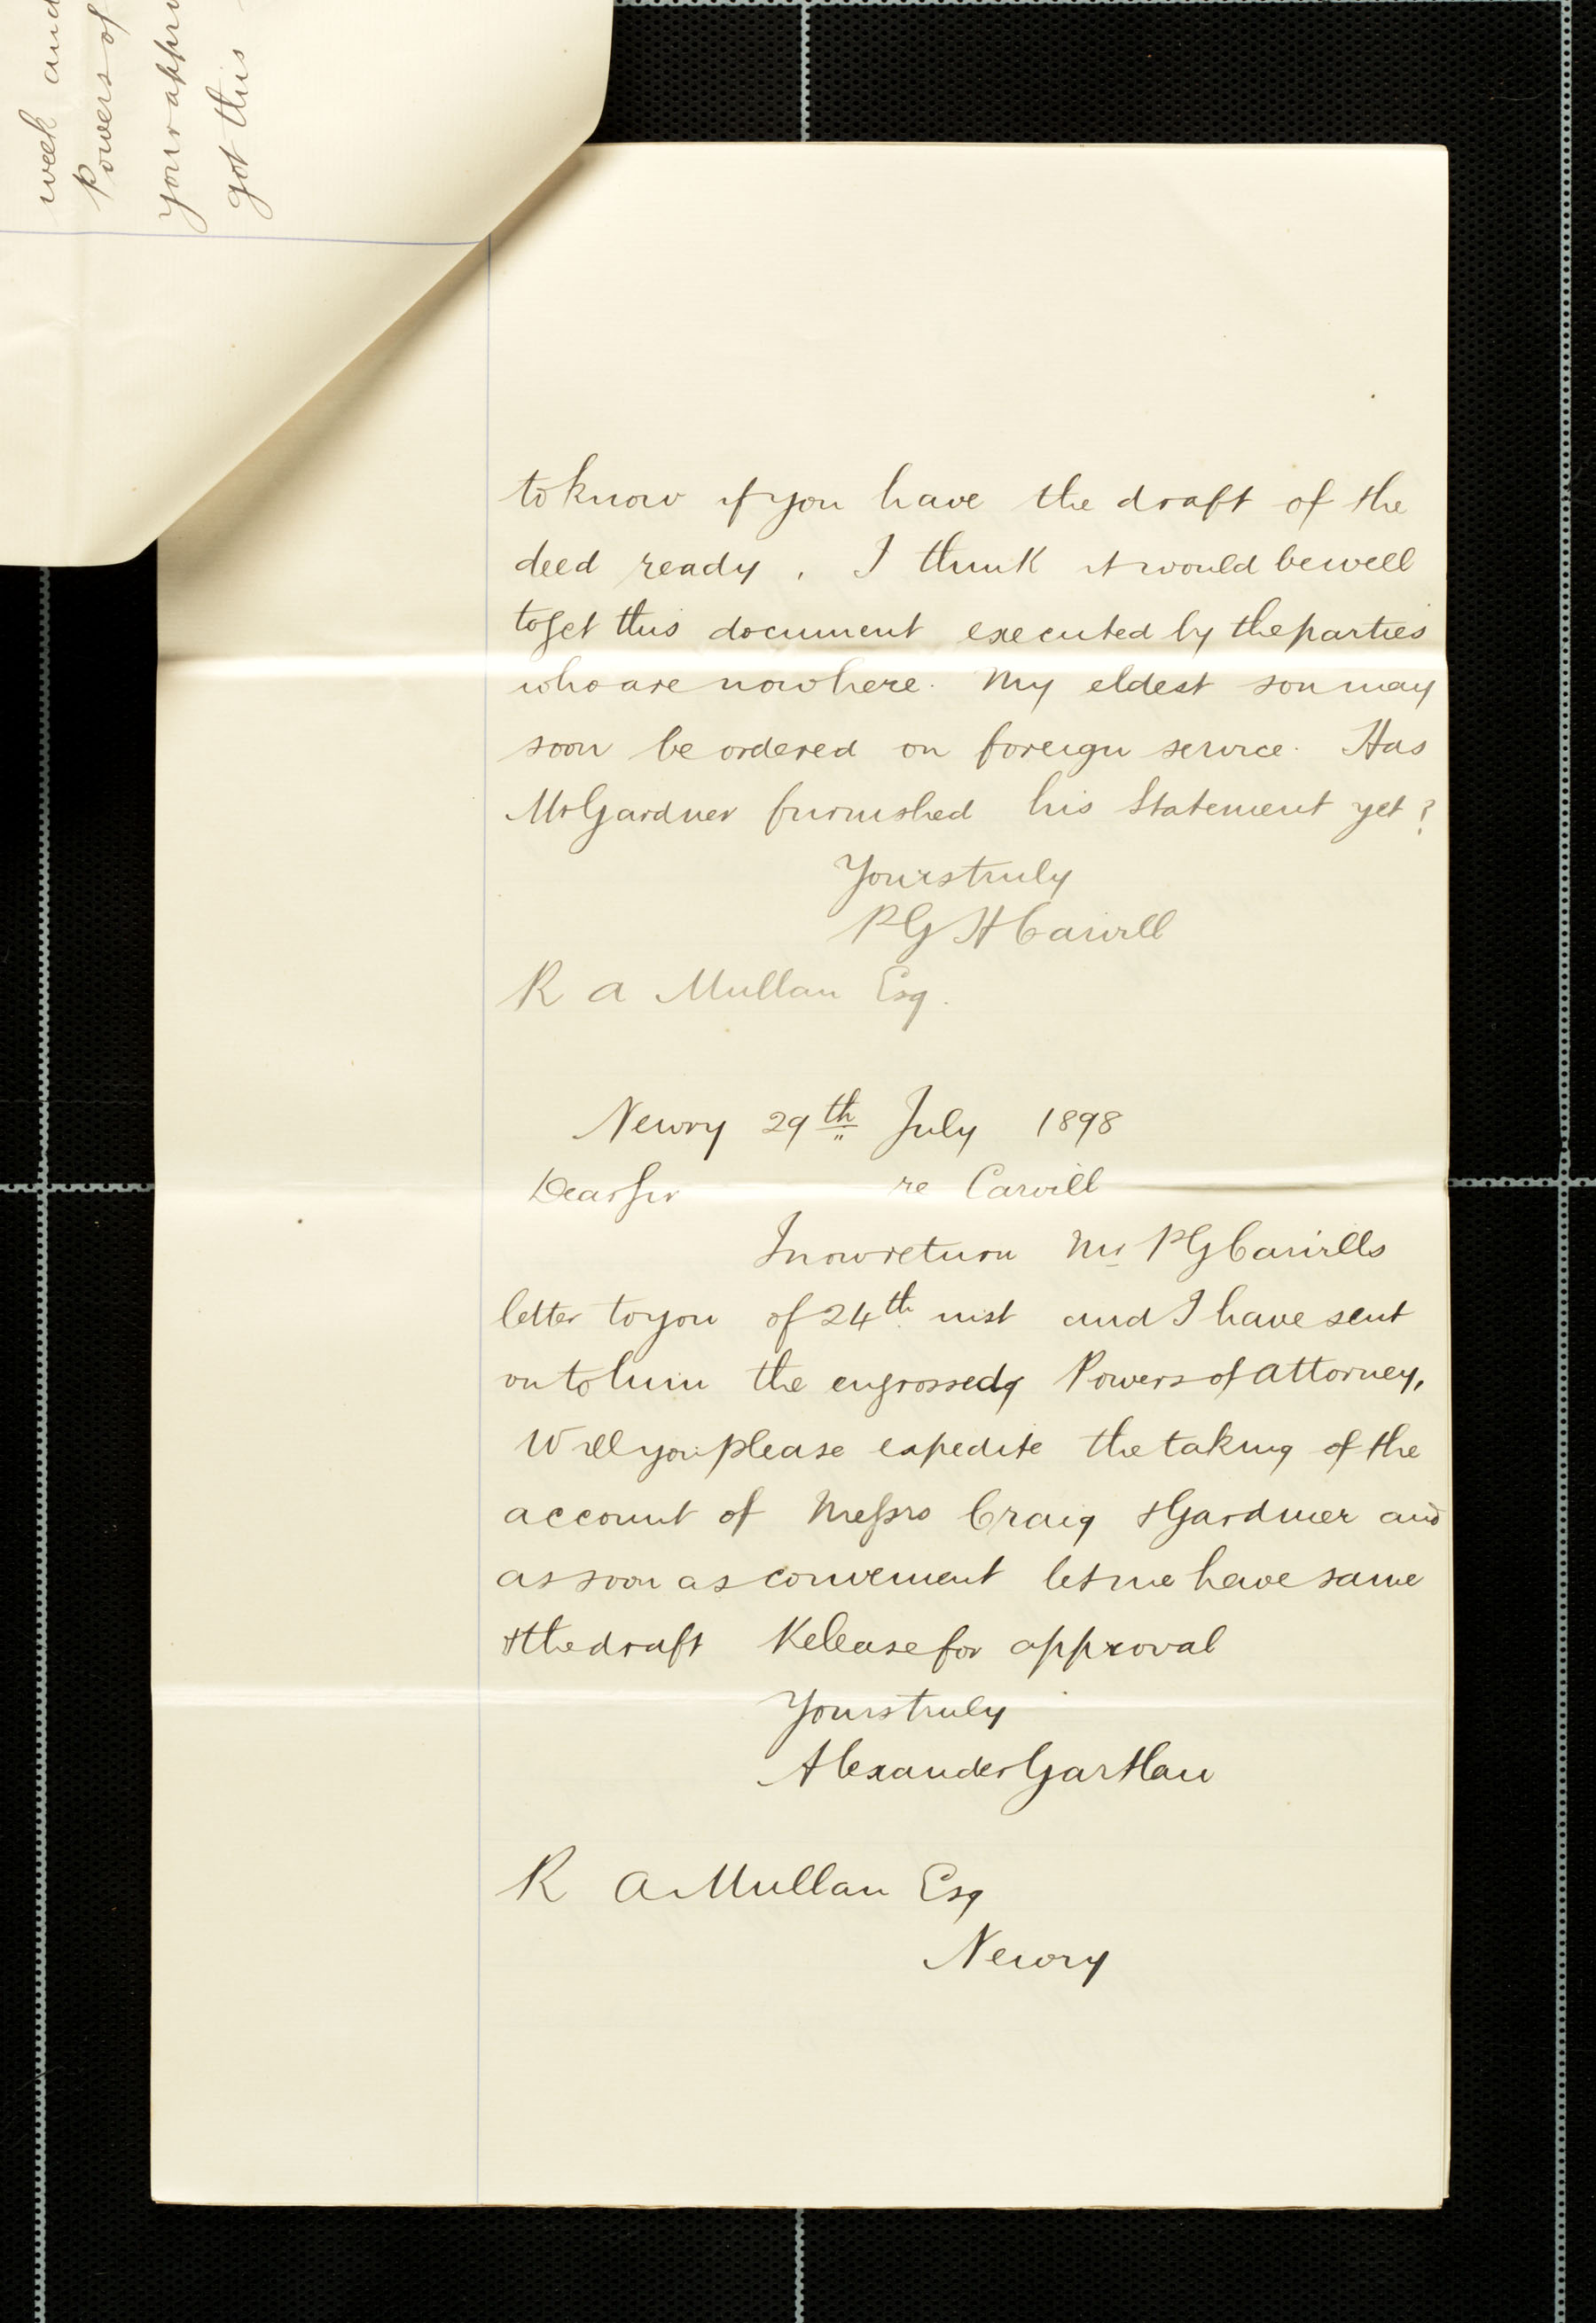 week and
Powers of
your appr
got this
to know if you have the draft of the
deed ready. I think it would be well
to get this document executed by the parties
who are now here. My eldest son may
soon be ordered on foreign service. Has
Mr Gardner furnished his Statement yet?
Yours truly
P G H Carvill
R A Mullan Esq.
Newry 29th July 1898
Dear Sir re Carvill
I now return Mr P G Carvills
letter to you of 24th inst and I have sent
on to him the engrossed Powers of Attorney,
Will you please expedite the taking of the
account of Messrs Craig & Gardner and
as soon as convenient let me have same
& the draft Release for approval
Yours truly
Alexander Gartlan
R A Mullan Esq
Newry